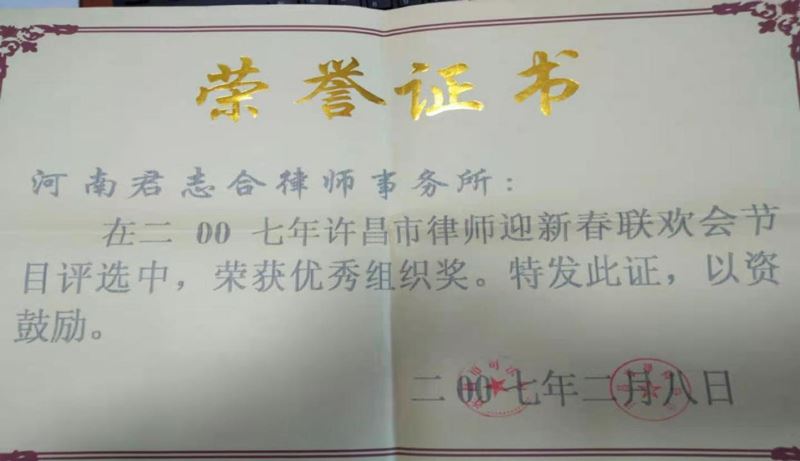 荣誉证书
河南君志合律师事务所：
在二00七年许昌市律师迎新春联欢会节
目评选中，荣获优秀组织奖。特发此证，以资
鼓励。
二00七年二月八日